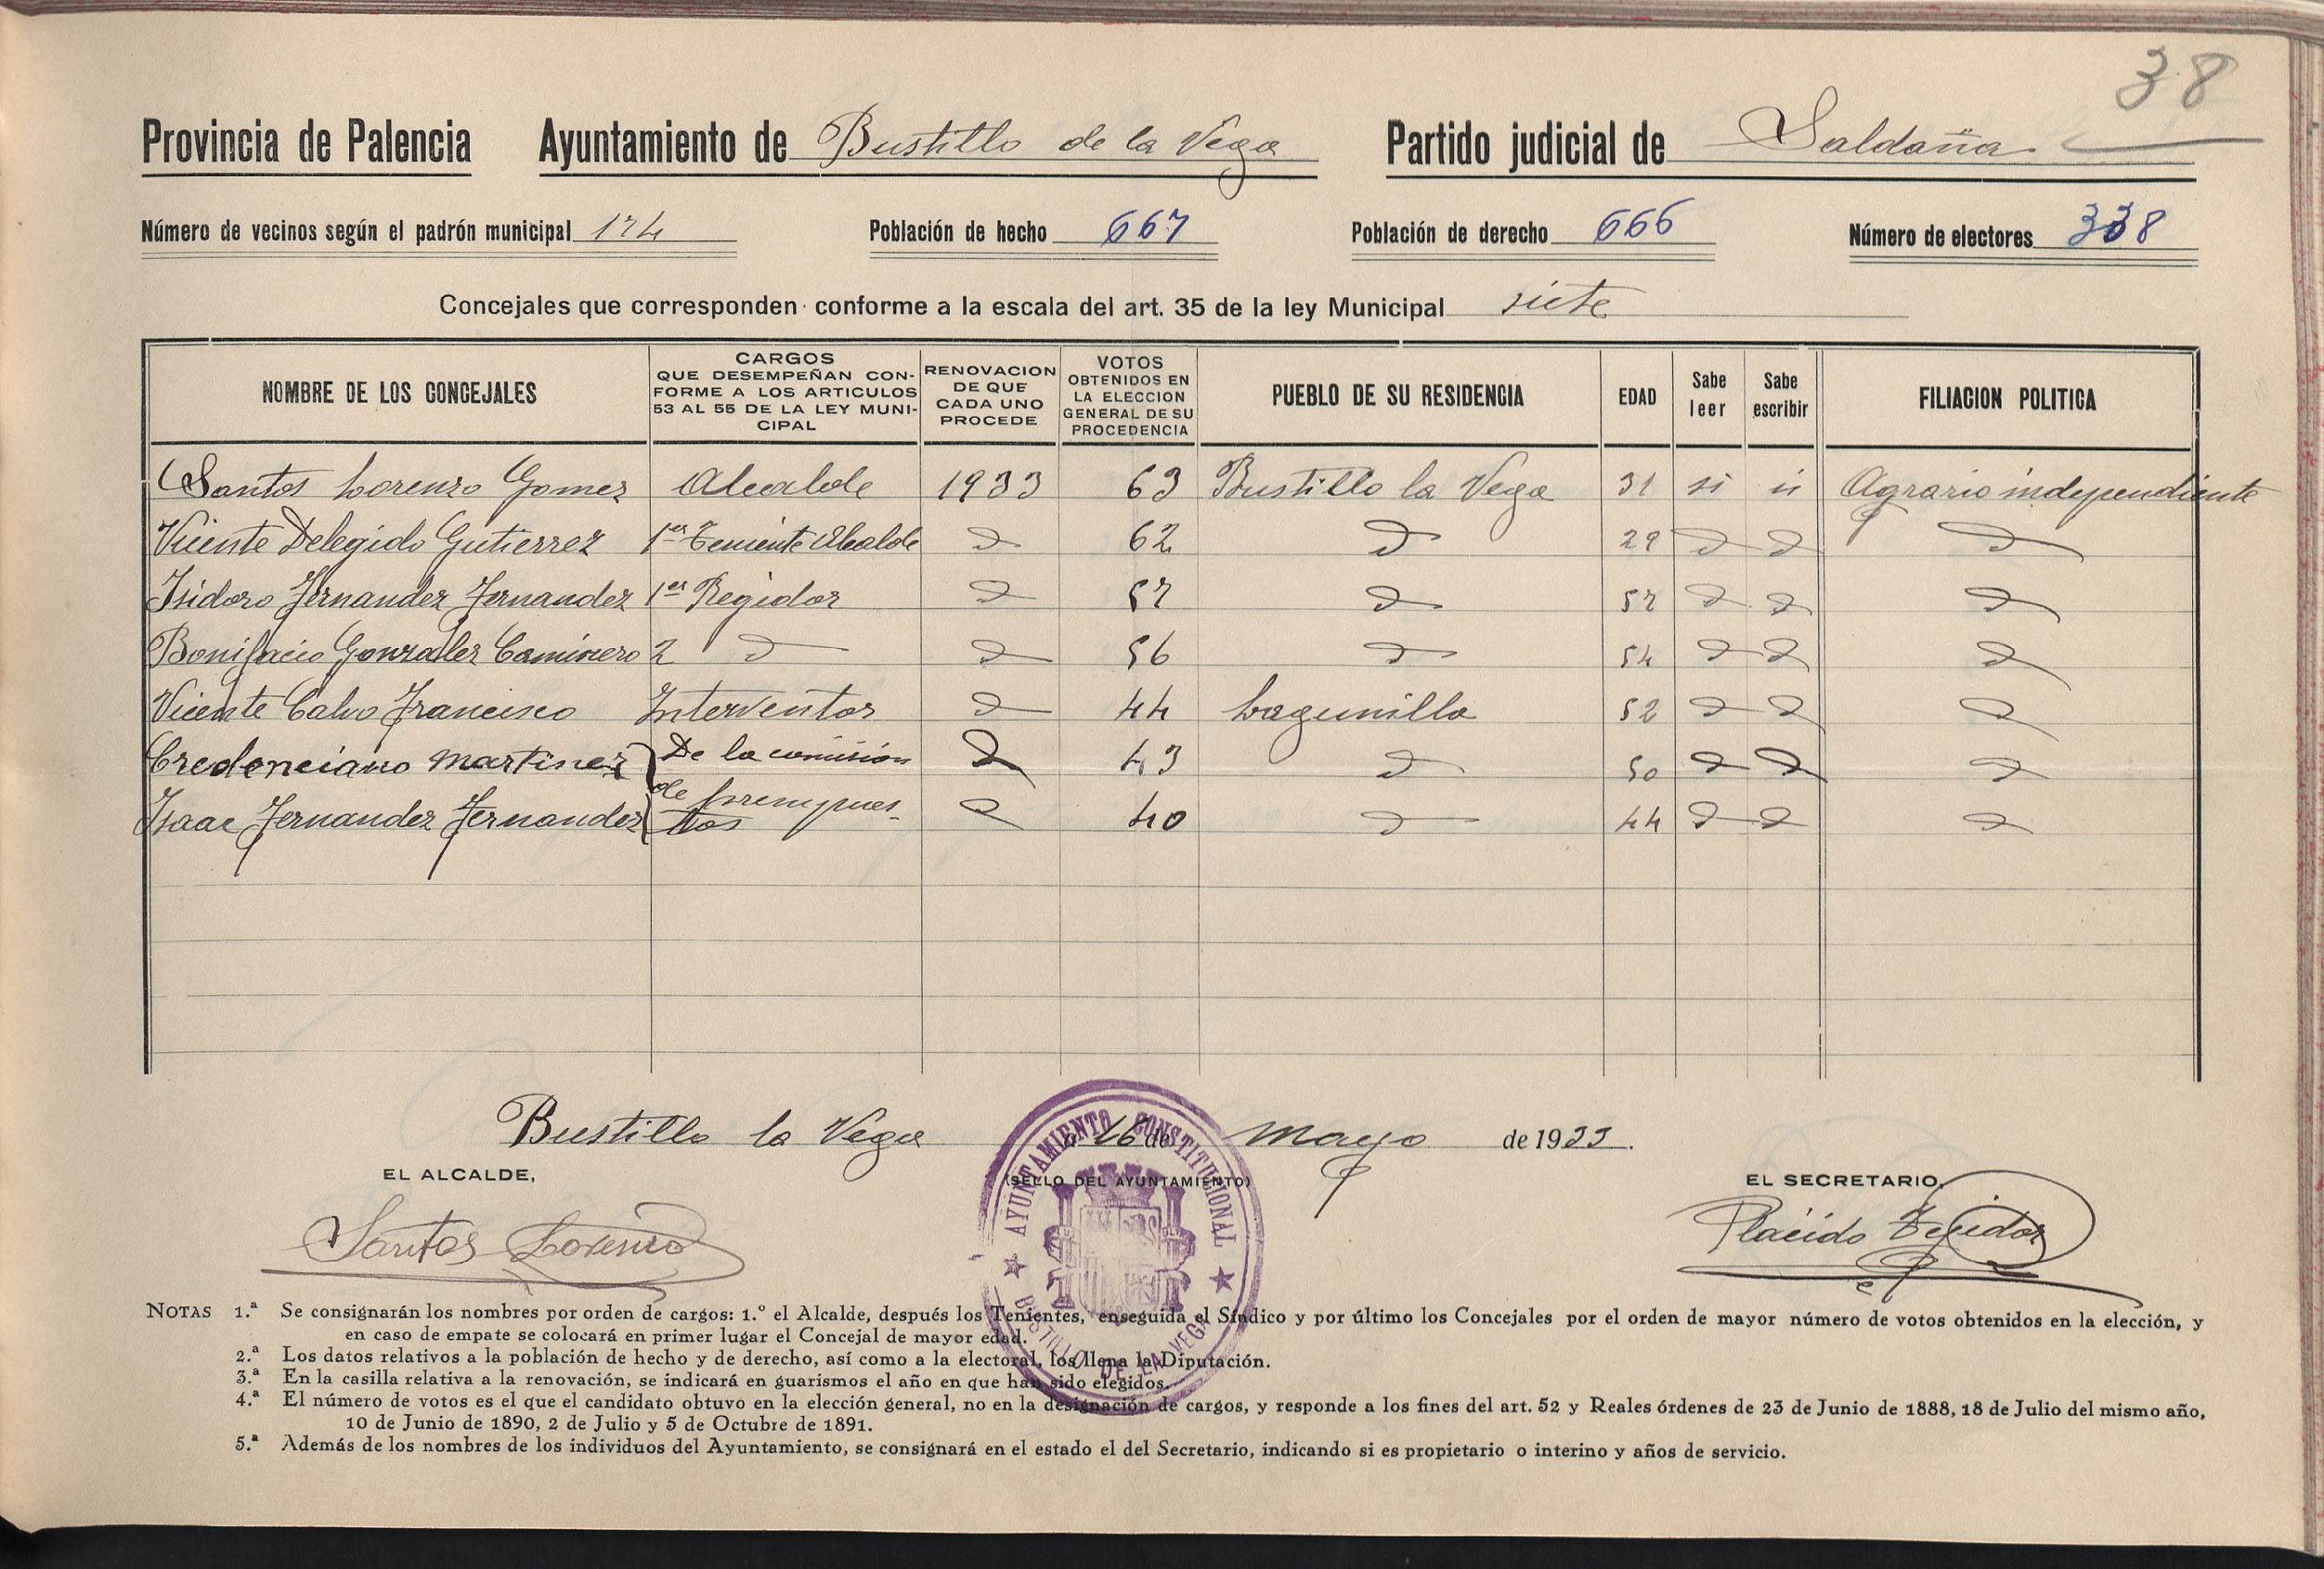 38
Provincia de Palencia Ayuntamiento de Bustillo de la Vega Partido judicial de Saldaña
Número de vecinos según el padrón municipal 174 Población de hecho 667 Población de derecho 666 Número de electores 338
Concejales que corresponden conforme a la escala del art. 35 de la ley Municipal siete
NOMBRE DE LOS CONCEJALES CARGOS QUE DESEMPEÑAN CONFORME A LOS ARTICULOS 53 AL 55 DE LA LEY MUNICIPAL RENOVACION DE QUE CADA UNO PROCEDE VOTOS OBTENIDOS EN LA ELECCION GENERAL DE SU PROCEDENCIA PUEBLO DE SU RESIDENCIA EDAD Sabe leer Sabe escribir FILIACION POLITICA
Santos Lorenzo Gomez Alcalde 1933 63 Bustillo la Vega 31 si si Agrario independiente
Vicente Delegido Gutierrez 1er Teniente Alcalde 62 29
Isidoro Fernandez Fernandez 1er Regidor 57 57
Bonifacio Gonzalez Caminero 2 56 54
Vicente Calvo Francisco Interventor 44 Lagunilla 52
Credenciano Martinez De la comisión 43 50
Isaac Fernandez Fernandez de presupuestos 40 44
Bustillo la Vega a 16 de Mayo de 1933.
EL ALCALDE, (SELLO DEL AYUNTAMIENTO) EL SECRETARIO,
Santos Lorenzo Plácido Tejedor
AYUNTAMIENTO CONSTITUCIONAL
BUSTILLO DE LA VEGA
NOTAS 1.ª Se consignarán los nombres por orden de cargos: 1.º el Alcalde, después los Tenientes, enseguida el Síndico y por último los Concejales por el orden de mayor número de votos obtenidos en la elección, y
en caso de empate se colocará en primer lugar el Concejal de mayor edad.
2.ª Los datos relativos a la población de hecho y de derecho, así como a la electoral, los llena la Diputación.
3.ª En la casilla relativa a la renovación, se indicará en guarismos el año en que han sido elegidos.
4.ª El número de votos es el que el candidato obtuvo en la elección general, no en la designación de cargos, y responde a los fines del art. 52 y Reales órdenes de 23 de Junio de 1888, 18 de Julio del mismo año,
10 de Junio de 1890, 2 de Julio y 5 de Octubre de 1891.
5.ª Además de los nombres de los individuos del Ayuntamiento, se consignará en el estado el del Secretario, indicando si es propietario o interino y años de servicio.